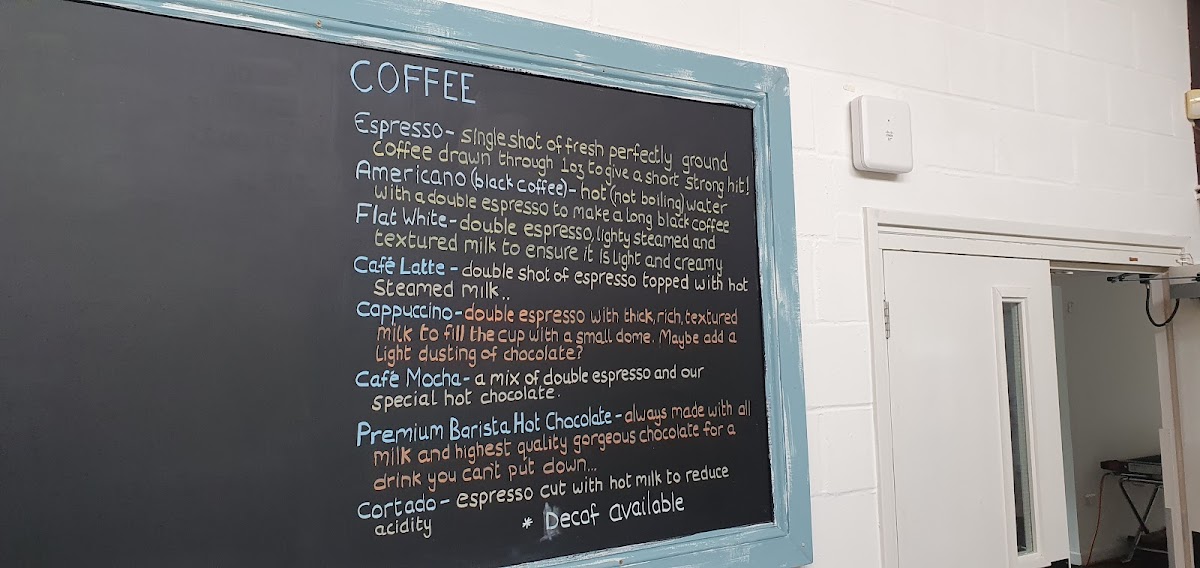 COFFEE
Espresso - single shot of fresh perfectly ground
coffee drawn through 1oz to give a short strong hit!
Americano (black coffee) - hot (not boiling) water
with a double espresso to make a long black coffee
Flat White - double espresso, lighty steamed and
textured milk to ensure it is light and creamy
Café Latte - double shot of espresso topped with hot
steamed milk..
Cappuccino - double espresso with thick, rich, textured
milk to fill the cup with a small dome. Maybe add a
light dusting of chocolate?
Café Mocha - a mix of double espresso and our
special hot chocolate.
Premium Barista Hot Chocolate - always made with all
milk and highest quality gorgeous chocolate for a
drink you can't put down...
Cortado - espresso cut with hot milk to reduce
acidity
* Decaf available